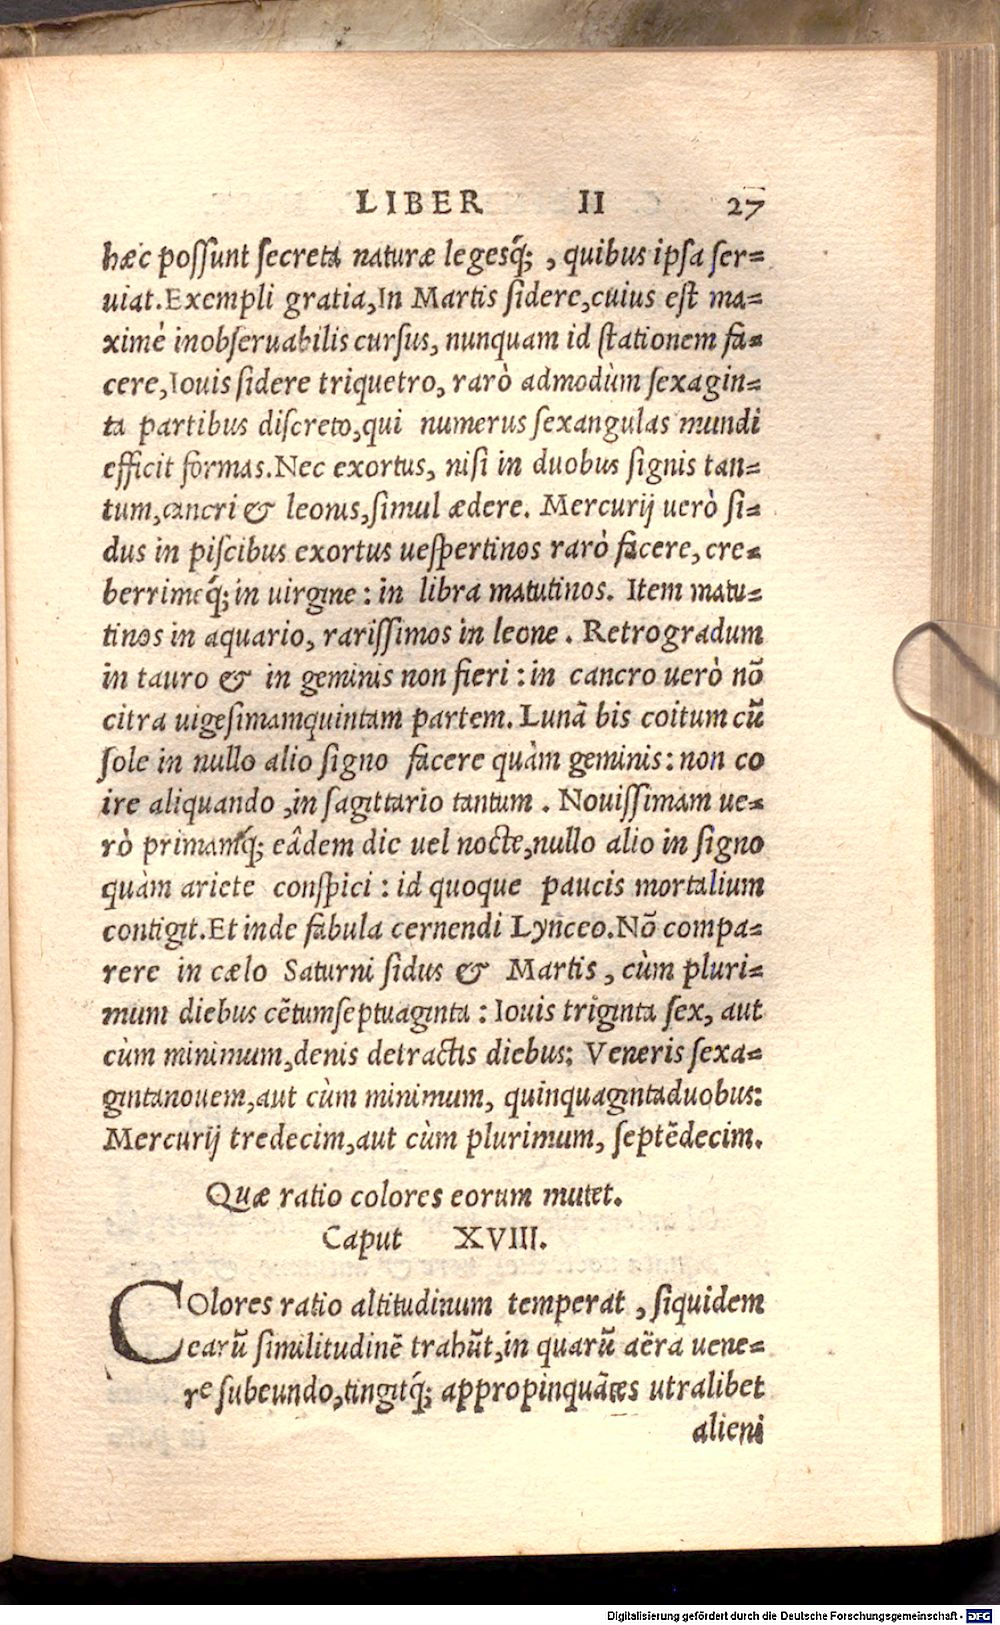 LIBER II 27
hæc possunt secreta naturæ legesq́;, quibus ipsa ser=
uiat. Exempli gratia, In Martis sidere, cuius est ma=
ximè inobseruabilis cursus, nunquam id stationem fa=
cere, Iouis sidere triquetro, rarò admodùm sexagin=
ta partibus discreto, qui numerus sexangulas mundi
efficit formas. Nec exortus, nisi in duobus signis tan=
tum, cancri & leonis, simul ædere. Mercurij uerò si=
dus in piscibus exortus uespertinos rarò facere, cre=
berrimeq́; in uirgine: in libra matutinos. Item matu=
tinos in aquario, rarissimos in leone. Retrogradum
in tauro & in geminis non fieri: in cancro uerò nõ
citra uigesimamquintam partem. Lunã bis coitum cũ
sole in nullo alio signo facere quàm geminis: non co
ire aliquando, in sagittario tantum. Nouissimam ue=
rò primamq́; eâdem die uel nocte, nullo alio in signo
quàm ariete conspici: id quoque paucis mortalium
contigit. Et inde fabula cernendi Lynceo. Nõ compa=
rere in cælo Saturni sidus & Martis, cùm pluri=
mum diebus cẽtumseptuaginta: Iouis triginta sex, aut
cùm minimum, denis detractis diebus: Veneris sexa=
gintanouem, aut cùm minimum, quinquagintaduobus:
Mercurij tredecim, aut cùm plurimum, septẽdecim.
Quæ ratio colores eorum mutet.
Caput XVIII.
COlores ratio altitudinum temperat, siquidem
earũ similitudinẽ trahũt, in quarũ aëra uene=
re subeundo, tingitq́; appropinquãtes utralibet
alieni
Digitalisierung gefördert durch die Deutsche Forschungsgemeinschaft - DFG